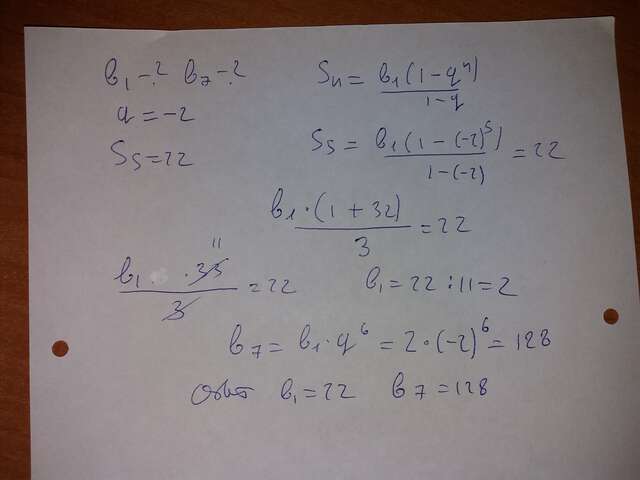 b₁ - ? b₇ - ?
q = -2
S₅ = 22
Sₙ = b₁(1 - qⁿ) / 1 - q
S₅ = b₁(1 - (-2)⁵) / 1 - (-2) = 22
b₁ · (1 + 32) / 3 = 22
11
b₁ · 33 / 3 = 22
b₁ = 22 : 11 = 2
b₇ = b₁ · q⁶ = 2 · (-2)⁶ = 128
Ответ b₁ = 22 b₇ = 128